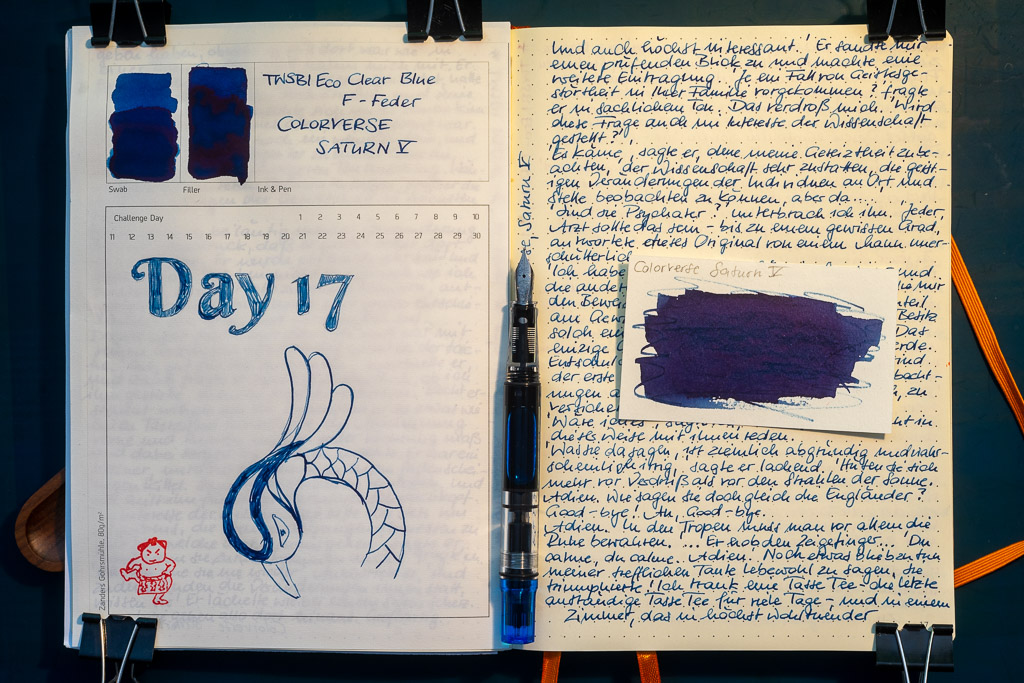 TWSBI Eco Clear Blue
F - Feder
COLORVERSE
SATURN V
Swab Filler Ink & Pen
Challenge Day 1 2 3 4 5 6 7 8 9 10
11 12 13 14 15 16 17 18 19 20 21 22 23 24 25 26 27 28 29 30
Day 17
Zanders Gohrsmühle, 80g/m²
Und auch höchst interessant! Er sandte mir
einen prüfenden Blick zu und machte eine
weitere Eintragung. Je ein Fall von Geistesge-
störtheit in Ihrer Familie vorgekommen? fragte
er in sachlichem Ton. Das verdroß mich. Wird
diese Frage auch im Interesse der Wissenschaft
gestellt?
Es käme, sagte er, ohne meine Gereiztheit zube-
achten, der Wissenschaft sehr zustatten, die geist-
igen Veränderungen der Individuen an Ort und
Stelle beobachten zu können, aber da...
Sind sie Psychater? unterbrach ich ihn. Jeder
Arzt sollte das sein - bis zu einem gewissen Grad,
antwortete dieses Original von einem Mann uner-
schütterlich
Ich habe und
die andet mir
den Bewei teil
am Gew Besitz
solch ein Das
einzige erde.
Entschul sind
der erste bacht-
ungen a , zu
versicher
Wäre ich es, sag nicht in
dieses Weise mit ihnen reden.
Was sie da sagen, ist ziemlich abgründig und wahr-
scheinlich irrig, sagte er lachend. Hüten sie sich
mehr vor Verdruß als vor den Strahlen der Sonne.
Adieu. Wie sagen sie doch gleich die Engländer?
Good-bye! Ah, Good-bye.
Adieu. In den Tropen muss man vor allem die
Ruhe bewahren. ... Er hob den Zeigefinger... Du
calme, du calme. Adieu! Noch etwas blieb zu tun
meiner trefflichen Tante Lebewohl zu sagen, sie
triumphierte! Ich trank eine Tasse Tee - die letzte
anständige Tasse Tee für viele Tage - und in einem
Zimmer, das in höchst wohltuender
Saturn V
Colorverse Saturn V